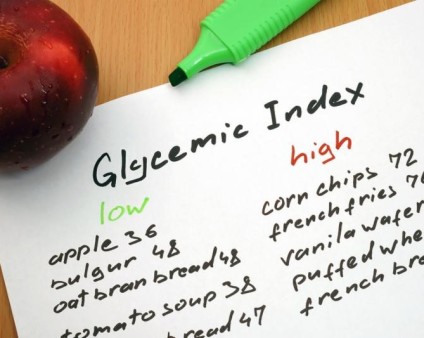 Glycemic Index
low
apple 36
bulgur 48
oat bran bread 48
tomato soup 38
47
high
corn chips 72
french fries
vanila wafer
puffed
french